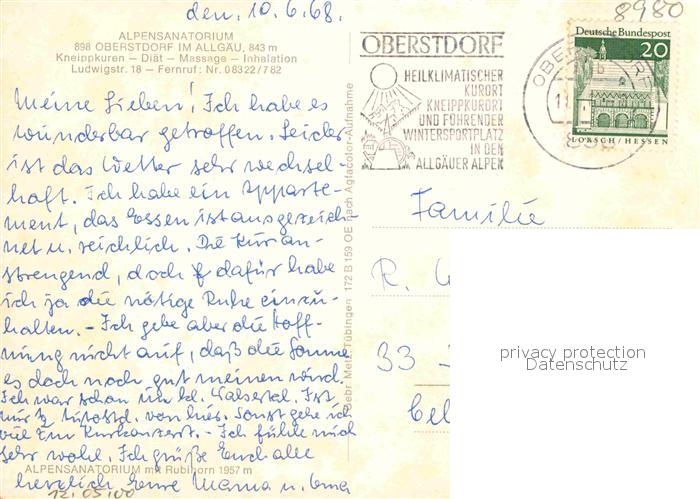 den. 10.6.68.
8980
ALPENSANATORIUM
898 OBERSTDORF IM ALLGÄU, 843 m
Kneippkuren – Diät – Massage – Inhalation
Ludwigstr. 18 – Fernruf: Nr. 08322/782
OBERSTDORF
HEILKLIMATISCHER
KURORT
KNEIPPKURORT
UND FÜHRENDER
WINTERSPORTPLATZ
IN DEN
ALLGÄUER ALPEN
Deutsche Bundespost
20
LORSCH/HESSEN
Meine Lieben! Ich habe es
wunderbar getroffen. Leider
ist das Wetter sehr wechsel-
haft. Ich habe ein Apparte-
ment, das Essen ist ausgezeich
net u. reichlich. Die Kur an-
strengend, doch dafür habe
ich ja die nötige Ruhe einzu-
halten. – Ich gebe aber die Hoff-
nung nicht auf, daß die Sonne
es doch noch gut meinen wird.
Ich war schon im kl. Walsertal. Ist
nur ½ von hier. Sonst gehe ich
viel zum Kurkonzert. – Ich fühle mich
sehr wohl. Ich grüße Euch alle
herzlich Eure Mama u. Oma
ALPENSANATORIUM mit Rubihorn 1957 m
12.05.00
Gebr. Metz, Tübingen 172 B 159 OE nach Agfacolor-Aufnahme
Familie
R.
33
Cel
privacy protection
Datenschutz